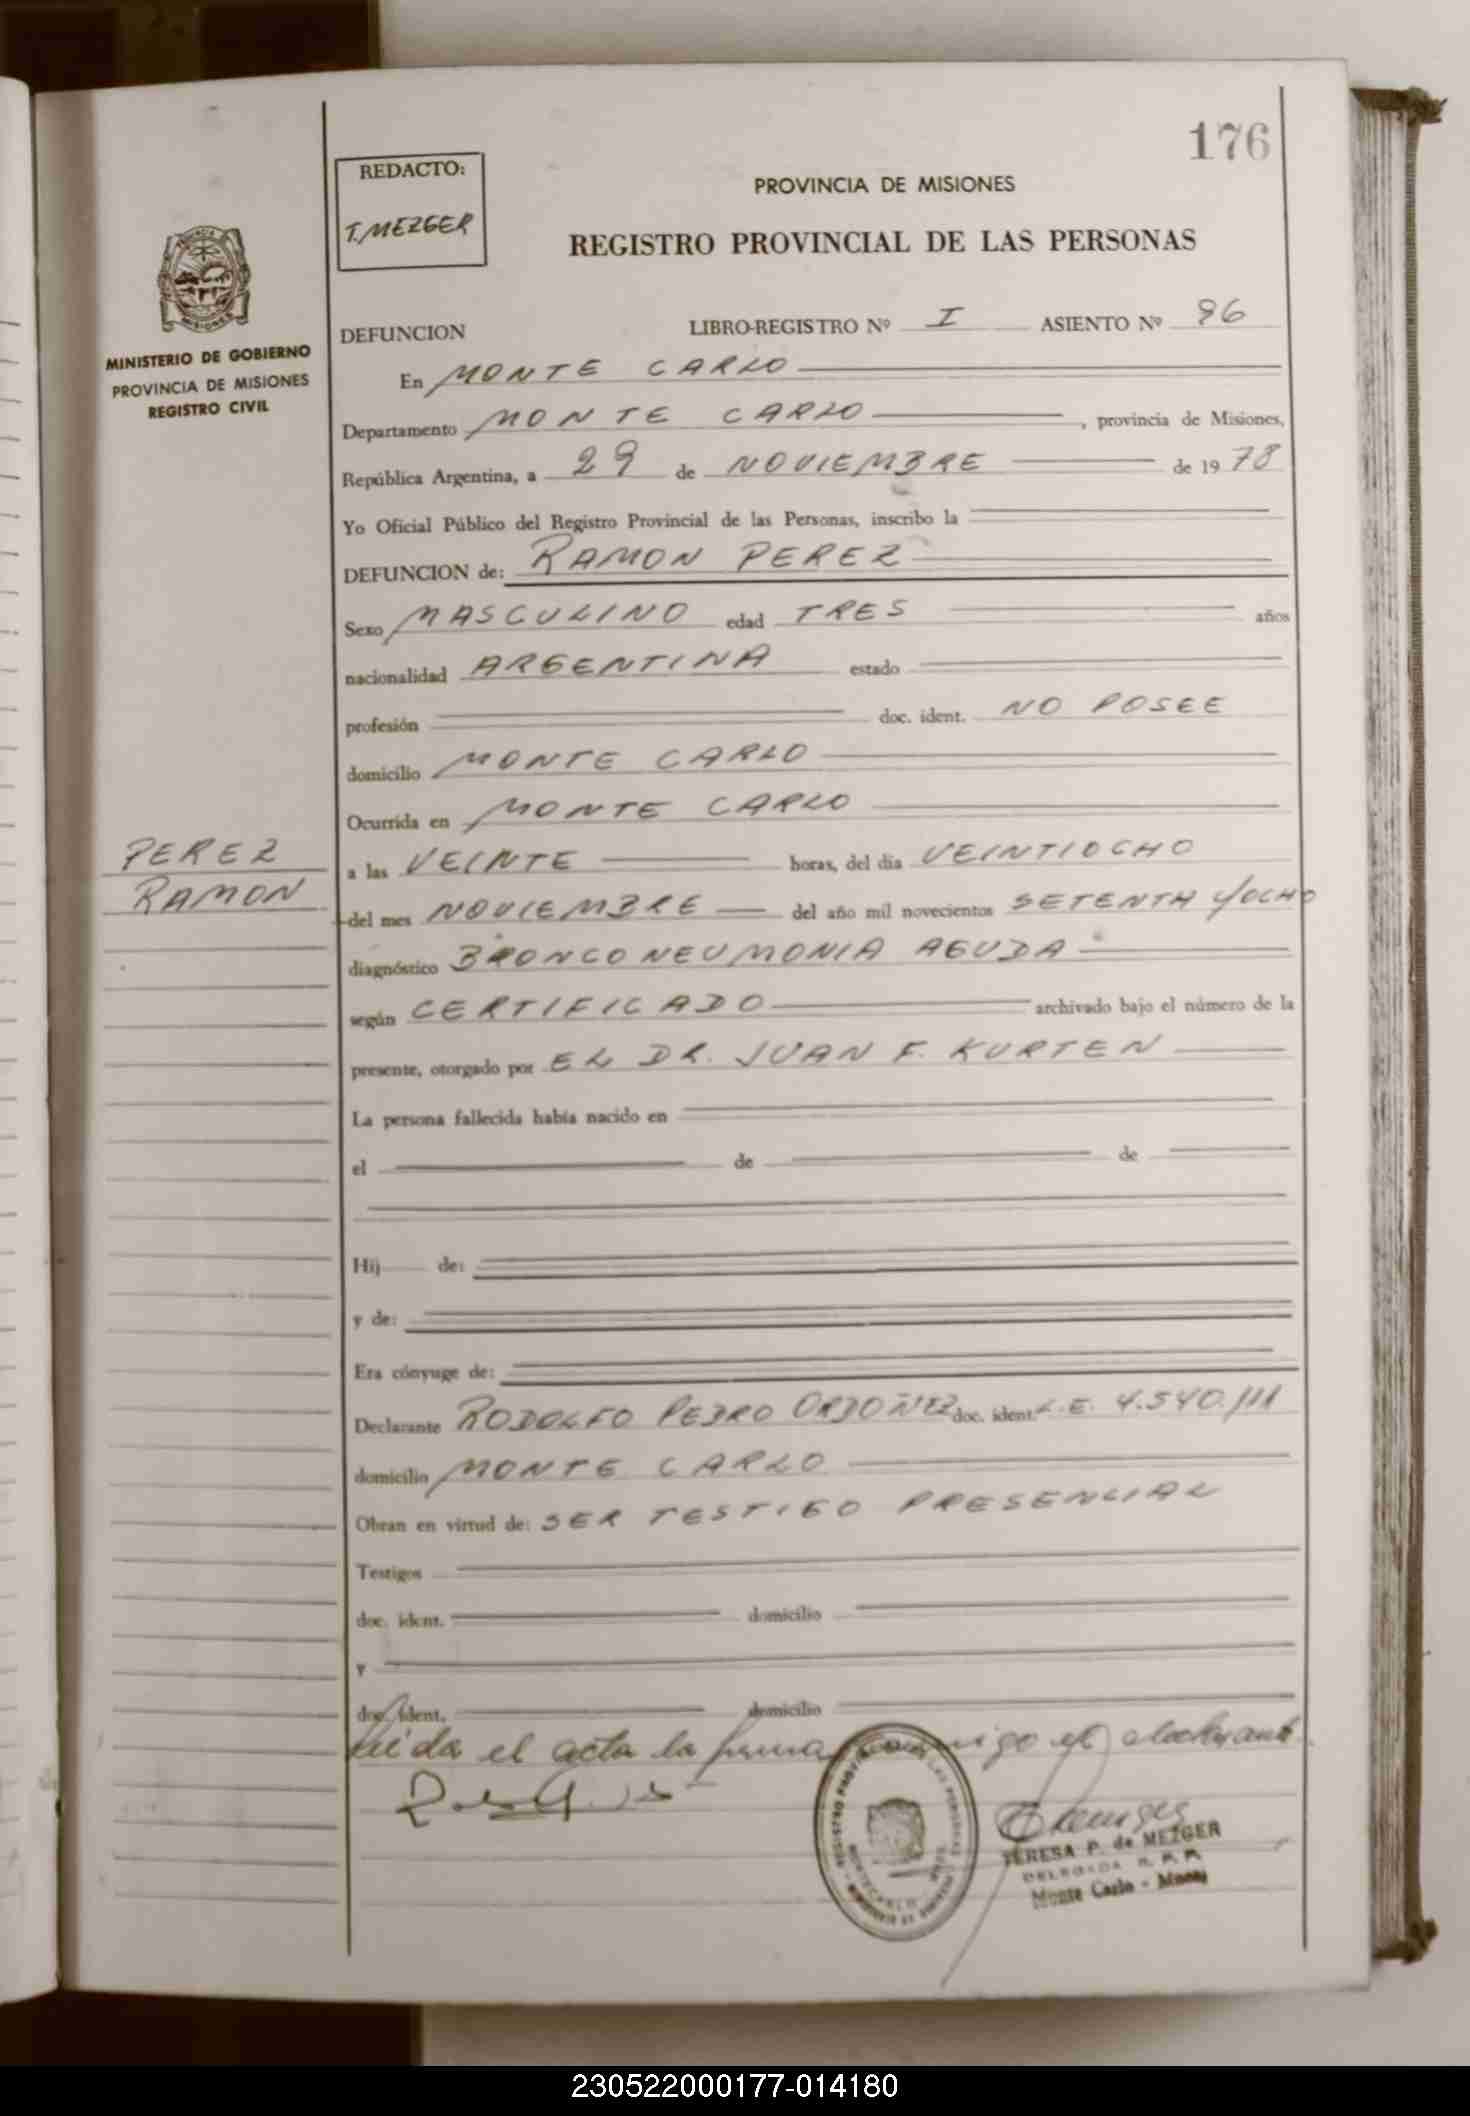 176
REDACTO:
T. MEZGER
PROVINCIA DE MISIONES
REGISTRO PROVINCIAL DE LAS PERSONAS
MINISTERIO DE GOBIERNO
PROVINCIA DE MISIONES
REGISTRO CIVIL
DEFUNCION LIBRO-REGISTRO Nº I ASIENTO Nº 96
En MONTE CARLO
Departamento MONTE CARLO, provincia de Misiones,
República Argentina, a 29 de NOVIEMBRE de 1978
Yo Oficial Público del Registro Provincial de las Personas, inscribo la
DEFUNCION de: RAMON PEREZ
Sexo MASCULINO edad TRES años
nacionalidad ARGENTINA estado
profesión doc. ident. NO POSEE
domicilio MONTE CARLO
Ocurrida en MONTE CARLO
PEREZ
RAMON
a las VEINTE horas, del día VEINTIOCHO
del mes NOVIEMBRE del año mil novecientos SETENTA Y OCHO
diagnóstico BRONCONEUMONIA AGUDA
según CERTIFICADO archivado bajo el número de la
presente, otorgado por EL DR. JUAN F. KURTEN
La persona fallecida había nacido en
el de de
Hij de:
y de:
Era cónyuge de:
Declarante RODOLFO PEDRO ORDOÑEZ doc. ident. L.E. 4.540.111
domicilio MONTE CARLO
Obran en virtud de: SER TESTIGO PRESENCIAL
Testigos
doc. ident. domicilio
y
doc. ident. domicilio
Leida el acta la firma el declarante
TERESA P. de MEZGER
DELEGADA R. P. P.
Monte Carlo - Mnes
230522000177-014180